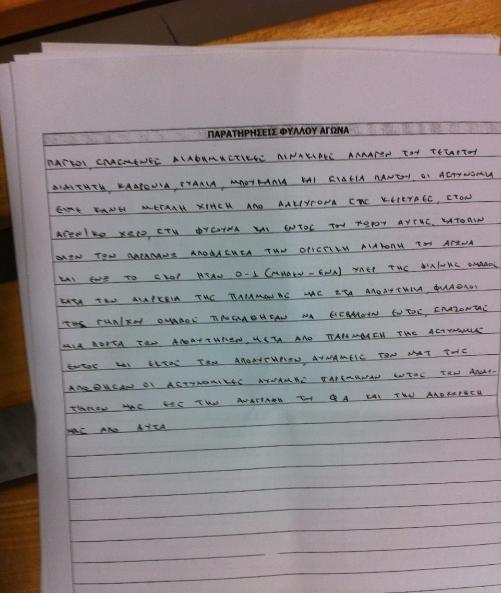 ΠΑΡΑΤΗΡΗΣΕΙΣ ΦΥΛΛΟΥ ΑΓΩΝΑ
ΠΑΓΚΟΙ, ΣΠΑΣΜΕΝΕΣ ΔΙΑΦΗΜΗΣΤΙΚΕΣ ΠΙΝΑΚΙΔΕΣ ΑΛΛΑΓΩΝ ΤΟΥ ΤΕΤΑΡΤΟΥ
ΔΙΑΙΤΗΤΗ, ΚΑΔΡΟΝΙΑ, ΓΥΑΛΙΑ, ΜΠΟΥΚΑΛΙΑ ΚΑΙ ΣΙΔΕΡΑ ΠΑΝΤΟΥ. ΟΙ ΑΣΤΥΝΟΜΙΑ
ΕΙΧΕ ΚΑΝΕΙ ΜΕΓΑΛΗ ΧΡΗΣΗ ΑΠΟ ΔΑΚΡΥΓΟΝΑ ΣΤΙΣ ΚΕΡΚΙΔΕΣ, ΣΤΟΝ
ΑΓΩΝ/ΚΟ ΧΩΡΟ, ΣΤΗ ΦΥΣΟΥΝΑ ΚΑΙ ΕΝΤΟΣ ΤΟΥ ΧΩΡΟΥ ΑΥΤΗΣ. ΚΑΤΟΠΙΝ
ΟΛΩΝ ΤΩΝ ΠΑΡΑΠΑΝΩ ΑΠΟΦΑΣΗΣΑ ΤΗΝ ΟΡΙΣΤΙΚΗ ΔΙΑΚΟΠΗ ΤΟΥ ΑΓΩΝΑ
ΚΑΙ ΕΝΩ ΤΟ ΣΚΟΡ ΗΤΑΝ 0-1 (ΜΗΔΕΝ-ΕΝΑ) ΥΠΕΡ ΤΗΣ ΦΙΛ/ΝΗΣ ΟΜΑΔΟΣ
ΚΑΤΑ ΤΗΝ ΔΙΑΡΚΕΙΑ ΤΗΣ ΠΑΡΑΜΟΝΗΣ ΜΑΣ ΣΤΑ ΑΠΟΔΥΤΗΡΙΑ, ΦΙΛΑΘΛΟΙ
ΤΗΣ ΓΗΠ/ΧΗ ΟΜΑΔΟΣ ΠΡΟΣΠΑΘΗΣΑΝ ΝΑ ΕΙΣΒΑΛΟΥΝ ΕΝΤΟΣ, ΣΠΑΖΟΝΤΑΣ
ΜΙΑ ΠΟΡΤΑ ΤΩΝ ΑΠΟΔΥΤΗΡΙΩΝ. ΜΕΤΑ ΑΠΟ ΠΑΡΕΜΒΑΣΗ ΤΗΣ ΑΣΤΥΝΟΜΙΑΣ
ΕΝΤΟΣ ΚΑΙ ΕΚΤΟΣ ΤΩΝ ΑΠΟΔΥΤΗΡΙΩΝ, ΔΥΝΑΜΕΙΣ ΤΩΝ ΜΑΤ ΤΟΥΣ
ΑΠΩΘΗΣΑΝ ΟΙ ΑΣΤΥΝΟΜΙΚΕΣ ΔΥΝΑΜΗΣ ΠΑΡΕΜΗΝΑΝ ΕΝΤΟΣ ΤΩΝ ΑΠΟΔΥ-
ΤΗΡΙΩΝ ΜΑΣ ΕΩΣ ΤΗΝ ΑΝΑΓΡΑΦΗ ΤΟΥ ΦΑ ΚΑΙ ΤΗΝ ΑΠΟΧΩΡΗΣΗ
ΜΑΣ ΑΠΟ ΑΥΤΑ